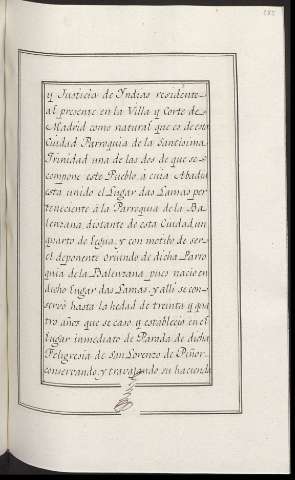 y Justicia de Yndias residente
al presente en la Villa y Corte de
Madrid como natural que es de esta
Ciudad Parroquia de la Santisima
Trinidad una de las dos de que se
compone este Pueblo, a cuia Abadia
esta unido el Lugar das Lamas per
teneciente á la Parroquia de la Ba
lenzana distante de esta Ciudad, un
quarto de legua, y con motibo de ser
el deponente Oriundo de dicha Parro
quia de la Balenzana pues nacio en
dicho Lugar das Lamas, y alli se con
servó hasta la hedad de treinta y qua
tro años que se caso y establecio en el
lugar inmediato de Parada de dicha
Feligresia de San Lorenzo de Piñor
conservando, y travajando su hacienda